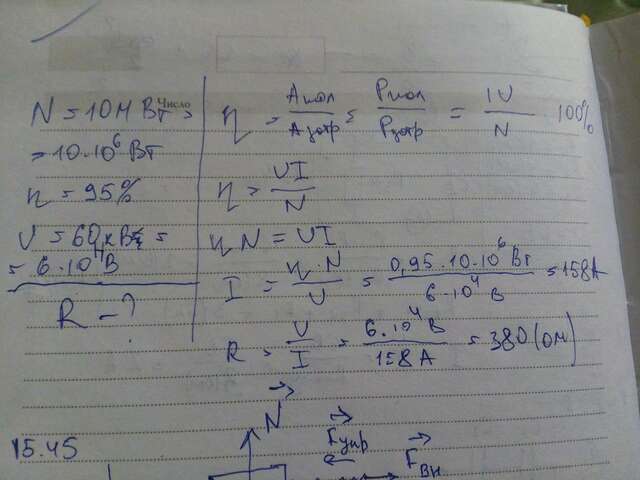 Число
N = 10М Вт =
= 10·10⁶ Вт
η = 95%
U = 60 кВ =
= 6·10⁴ В
R – ?
η = Aпол / Aзатр = Pпол / Pзатр = IU / N 100%
η = UI / N
ηN = UI
I = η·N / U = 0,95·10·10⁶ Вт / 6·10⁴ В = 158А
R = U / I = 6·10⁴ В / 158 А = 380 (Ом)
15.45
N
Fупр
Fвн